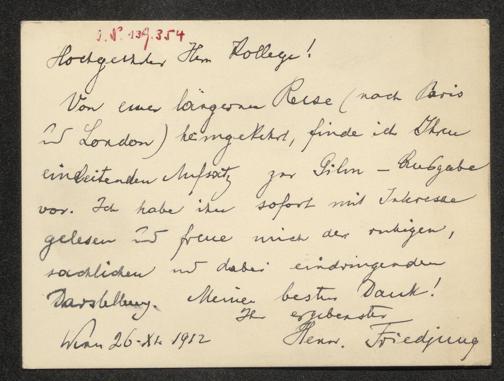 I. N. 139.354
Hochgeehrter Herr Kollege!
Von einer längeren Reise (nach Paris
und London) heimgekehrt, finde ich Ihren
einleitenden Aufsatz zur Gilm-Ausgabe
vor. Ich habe ihn sofort mit Interesse
gelesen und freue mich der ruhigen,
sachlichen und dabei eindringenden
Darstellung. Meinen besten Dank!
Ihr ergebenster
Wien 26-XI. 1912 Heinr. Friedjung